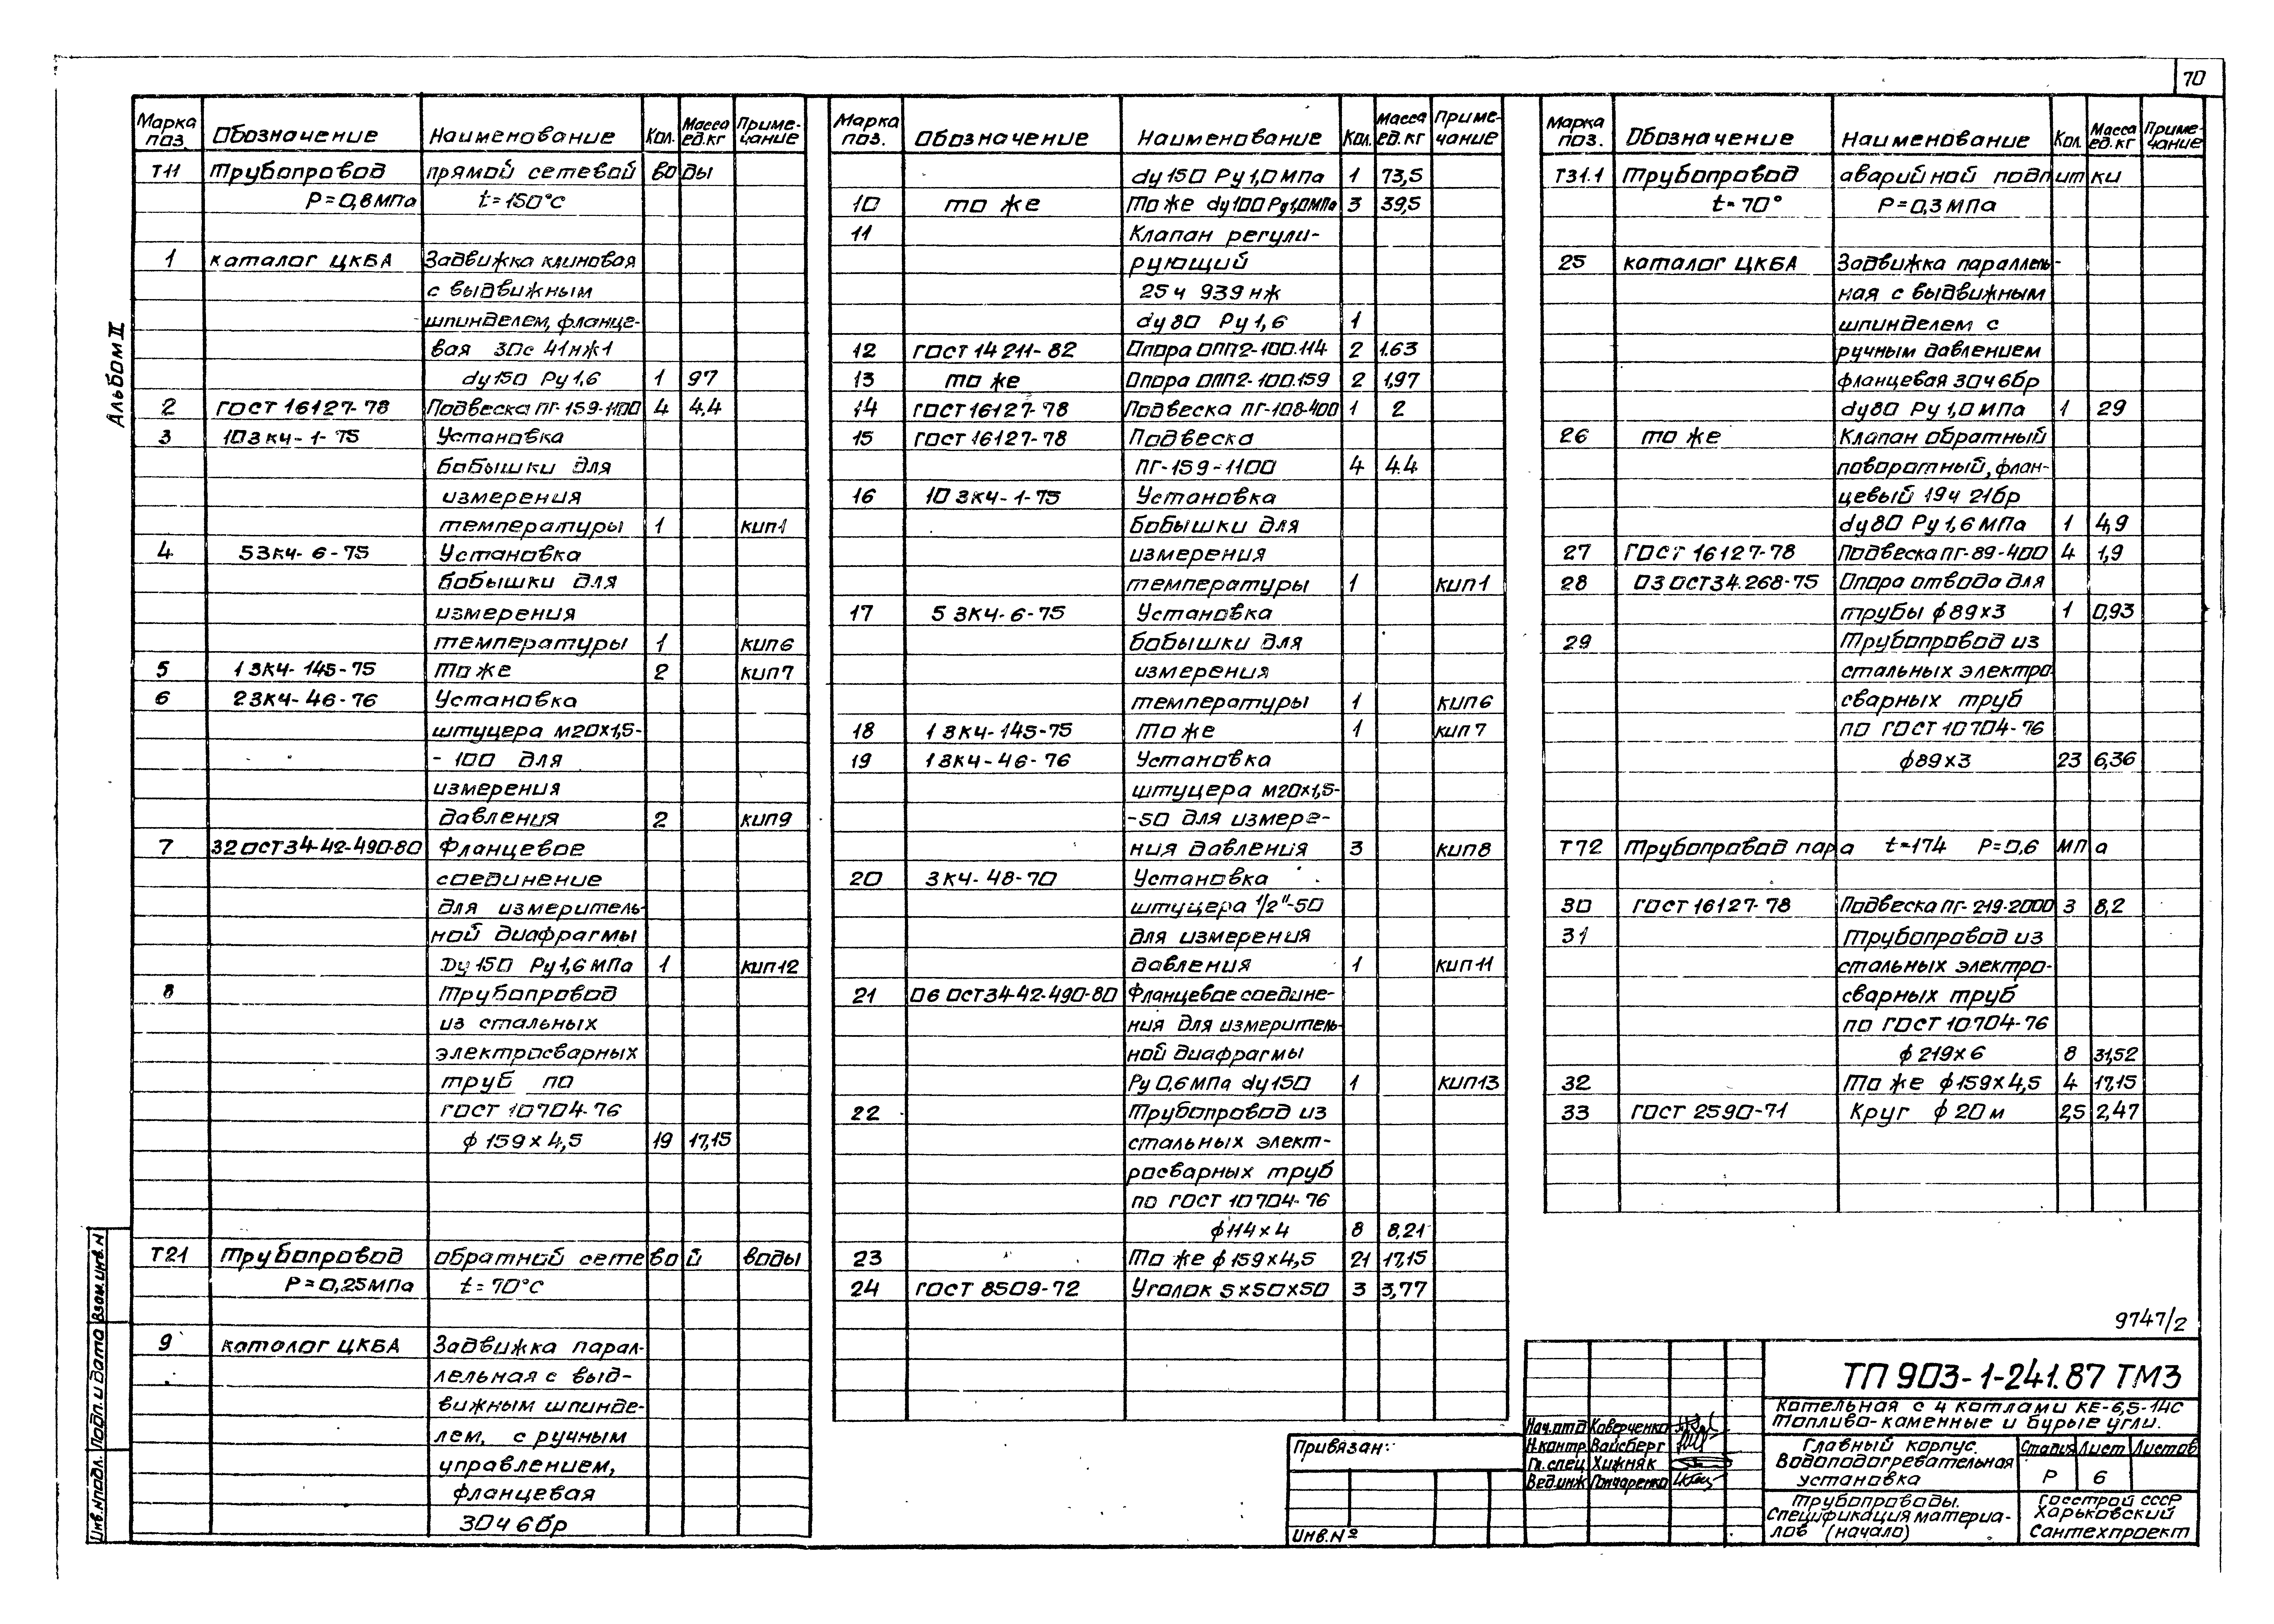 70
Альбом II
Марка поз. Обозначение Наименование Кол. Масса ед.кг Приме-чание
Т11 Трубопровод прямой сетевой воды
Р=0,8МПа t=150°С
1 каталог ЦКБА Задвижка клиновая
с выдвижным
шпинделем, фланце-
вая 30с 41нж1
dу150 Ру1,6 1 97
2 ГОСТ 16127-78 Подвеска ПГ-159-1100 4 4.4
3 103КЧ-1-75 Установка
бобышки для
измерения
температуры 1 кип1
4 53КЧ-6-75 Установка
бобышки для
измерения
температуры 1 кип6
5 13КЧ-145-75 То же 2 кип7
6 23КЧ-46-76 Установка
штуцера М20х1,5-
-100 для
измерения
давления 2 кип9
7 32 ОСТ34-42-490-80 Фланцевое
соединение
для измеритель-
ной диафрагмы
Dу 150 Ру1,6 МПа 1 кип12
8 Трубопровод
из стальных
электросварных
труб по
ГОСТ 10704-76
ф 159×4,5 19 17,15
Т21 Трубопровод обратной сетевой воды
Р=0,25МПа t=70°С
9 каталог ЦКБА Задвижка парал-
лельная с выд-
вижным шпинде-
лем, с ручным
управлением,
фланцевая
30ч 6бр
Марка поз. Обозначение Наименование Кол. Масса ед.кг Приме-чание
dу150 Ру1,0МПа 1 73,5
10 то же То же dу100 Ру1,0МПа 3 39,5
11 Клапан регули-
рующий
25ч 939нж
dу80 Ру1,6 1
12 ГОСТ 14 211-82 Опора ОПП2-100.114 2 1.63
13 то же Опора ОПП2-100.159 2 1,97
14 ГОСТ 16127-78 Подвеска ПГ-108-400 1 2
15 ГОСТ 16127-78 Подвеска
ПГ-159-1100 4 4.4
16 10 3КЧ-1-75 Установка
бобышки для
измерения
температуры 1 кип1
17 5 3КЧ-6-75 Установка
бобышки для
измерения
температуры 1 кип6
18 1 3КЧ-145-75 То же 1 кип7
19 13КЧ-46-76 Установка
штуцера М20×1,5-
-50 для измере-
ния давления 3 кип8
20 3КЧ-48-70 Установка
штуцера 1/2"-50
для измерения
давления 1 кип11
21 06 ОСТ34-42-490-80 Фланцевое соедине-
ния для измеритель-
ной диафрагмы
Ру 0,6МПа dу150 1 кип13
22 Трубопровод из
стальных элект-
росварных труб
по ГОСТ 10704-76
ф114×4 8 8,21
23 То же ф159×4,5 21 17,15
24 ГОСТ 8509-72 Уголок 5×50×50 3 3,77
Марка поз. Обозначение Наименование Кол. Масса ед.кг Приме-чание
Т31.1 Трубопровод аварийной подпитки
t=70° Р=0,3МПа
25 каталог ЦКБА Задвижка параллель-
ная с выдвижным
шпинделем с
ручным давлением
фланцевая 30ч 6бр
dу80 Ру1,0МПа 1 29
26 то же Клапан обратный
поворотный, флан-
цевый 19ч 21бр
dу80 Ру1,6МПа 1 4,9
27 ГОСТ 16127-78 Подвеска ПГ-89-400 4 1,9
28 03 ОСТ34.268-75 Опора отвода для
трубы ф89×3 1 0,93
29 Трубопровод из
стальных электро
сварных труб
по ГОСТ 10704-76
ф89×3 23 6,36
Т72 Трубопровод пара t=174 Р=0,6 МПа
30 ГОСТ 16127-78 Подвеска ПГ-219-2000 3 8,2
31 Трубопровод из
стальных электро-
сварных труб
по ГОСТ 10704-76
ф219×6 8 31,52
32 То же ф159×4,5 4 17,15
33 ГОСТ 2590-71 Круг ф20м 2,5 2,47
9747/2
ТП 903-1-241.87 ТМ3
Котельная с 4 котлами КЕ-6,5-14С
Топливо-каменные и бурые угли.
Нач.отд Коверченко
Н.контр. Вайсберг
Гл.спец Хижняк
Вед.инж Гончаренко
Главный корпус.
Водоподогревательная
установка
Стадия Лист Листов
Р 6
Трубопроводы.
Спецификация материа-
лов (начало)
Госстрой СССР
Харьковский
Сантехпроект
Привязан:
Инв.№
Инв.№подл. Подп. и дата Взам.инв.№